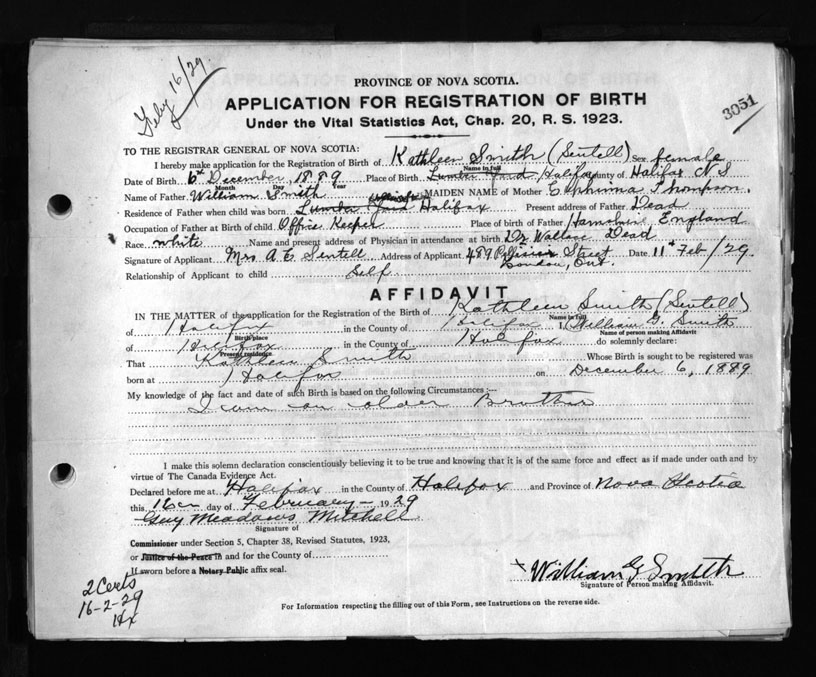 Feby 16/29
PROVINCE OF NOVA SCOTIA.
3051
APPLICATION FOR REGISTRATION OF BIRTH
Under the Vital Statistics Act, Chap. 20, R. S. 1923.
TO THE REGISTRAR GENERAL OF NOVA SCOTIA:
I hereby make application for the Registration of Birth of Kathleen Smith (Sentell) Sex female
Name in full
Date of Birth 6th December, 1889 Place of Birth Lumber Yard Halifax County of Halifax N S
Month Day Year
Name of Father William Smith MAIDEN NAME of Mother Euphimia Thompson.
Residence of Father when child was born Lumber Yard Halifax Present address of Father Dead
Occupation of Father at Birth of child Office Keeper Place of birth of Father Hampshire England
Race white Name and present address of Physician in attendance at birth Dr Wallace Dead
Signature of Applicant Mrs A. E. Sentell Address of Applicant 489 Street Date 11th Feb/29.
London, Ont.
Relationship of Applicant to child Self
AFFIDAVIT
IN THE MATTER of the application for the Registration of the Birth of Kathleen Smith (Sentell)
Name in full
of Halifax in the County of Halifax I, William G. Smith
Birth place Name of person making Affidavit
of Halifax in the County of Halifax do solemnly declare:
Present residence
That Kathleen Smith Whose Birth is sought to be registered was
born at Halifax on December 6, 1889
My knowledge of the fact and date of such Birth is based on the following Circumstances:—
I am an older Brother
I make this solemn declaration conscientiously believing it to be true and knowing that it is of the same force and effect as if made under oath and by
virtue of The Canada Evidence Act.
Declared before me at Halifax in the County of Halifax and Province of Nova Scotia
this 16th day of February 1929
Guy Meadows Mitchell
Signature of
Commissioner under Section 5, Chapter 38, Revised Statutes, 1923,
or Justice of the Peace in and for the County of
If sworn before a Notary Public affix seal.
x William G Smith
Signature of Person making Affidavit.
2 Certs
16-2-29
Hx
For Information respecting the filling out of this Form, see Instructions on the reverse side.